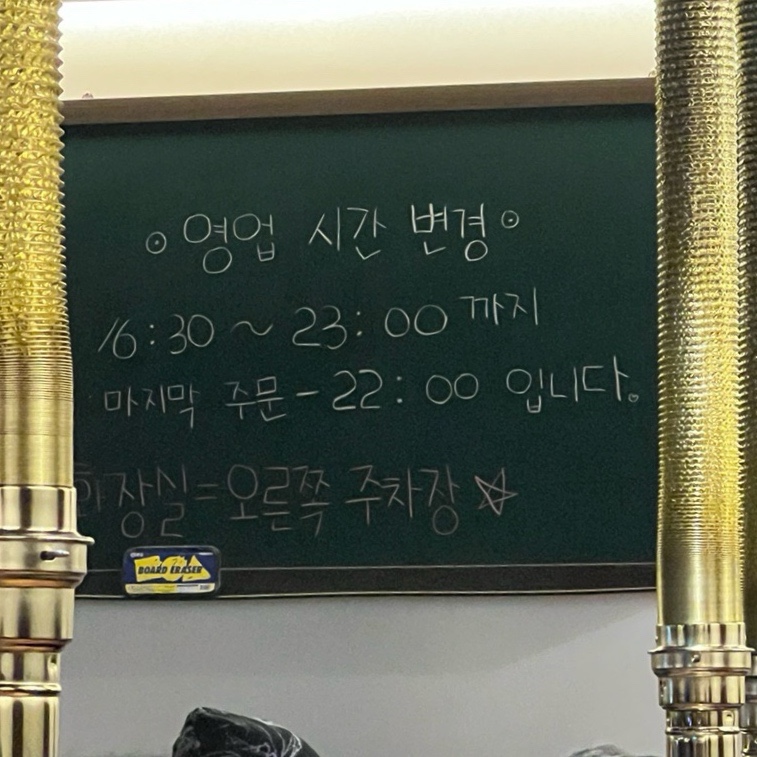 ⊙ 영업 시간 변경 ⊙
16:30 ~ 23:00 까지
마지막 주문 - 22:00 입니다.
화장실 = 오른쪽 주차장 ☆
BOARD ERASER